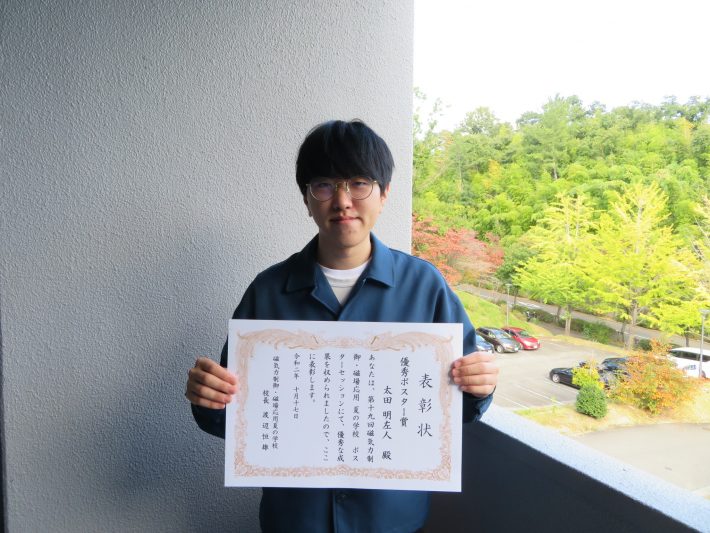 表彰状
優秀ポスター賞
太田 明左人 殿
あなたは、第十九回磁気力制
御・磁場応用 夏の学校 ポス
ターセッションにて、優秀な成
果を収められましたので、ここ
に表彰します。
令和二年 十月十七日
磁気力制御・磁場応用夏の学校
校長 渡辺 恒雄